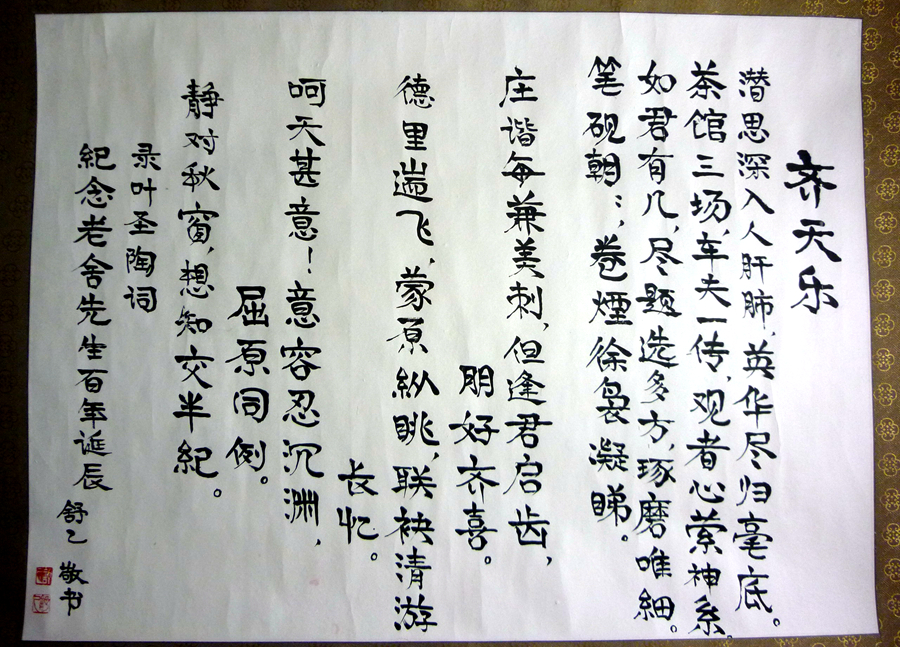 齐天乐
潜思深入人肝肺，英华尽归毫底。
茶馆三场，车夫一传，观者心萦神系。
如君有几，尽题选多方，琢磨唯細。
笔砚朝：，卷煙徐袅凝睇。
庄谐每兼美刺，但逢君启齿，
朋好齐喜。
德里遄飞，蒙原縱眺，联袂清游
长忆。
呵天甚意！意容忍沉渊，
屈原同例。
静对秋窗，想知交半紀。
录叶圣陶词
紀念老舍先生百年诞辰
舒乙 敬书